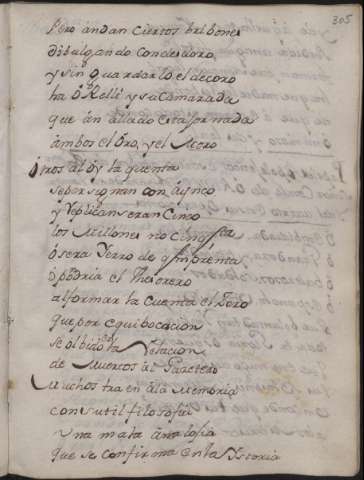 305
Pero andan ciertos bribones
dibulgando con desdoro,
y sin guardarle el decoro
ha ôRelli y su Camarada
que án allado esta formada
ambos el Oro, y el Moro
Otros al oy la quenta
se persignan con ajinco
y Replican seran Cinco
los Millones no
ó sera Yerro de ymprenta
ó podria el Thesorero
al formar la Cuenta el Toro
que por equibocacion
se olbido la Relacion
de Muertos al Paredero
Muchos tra en á la Memoria
con sutil filosofia
una mala
que se confirma en la Ystoria